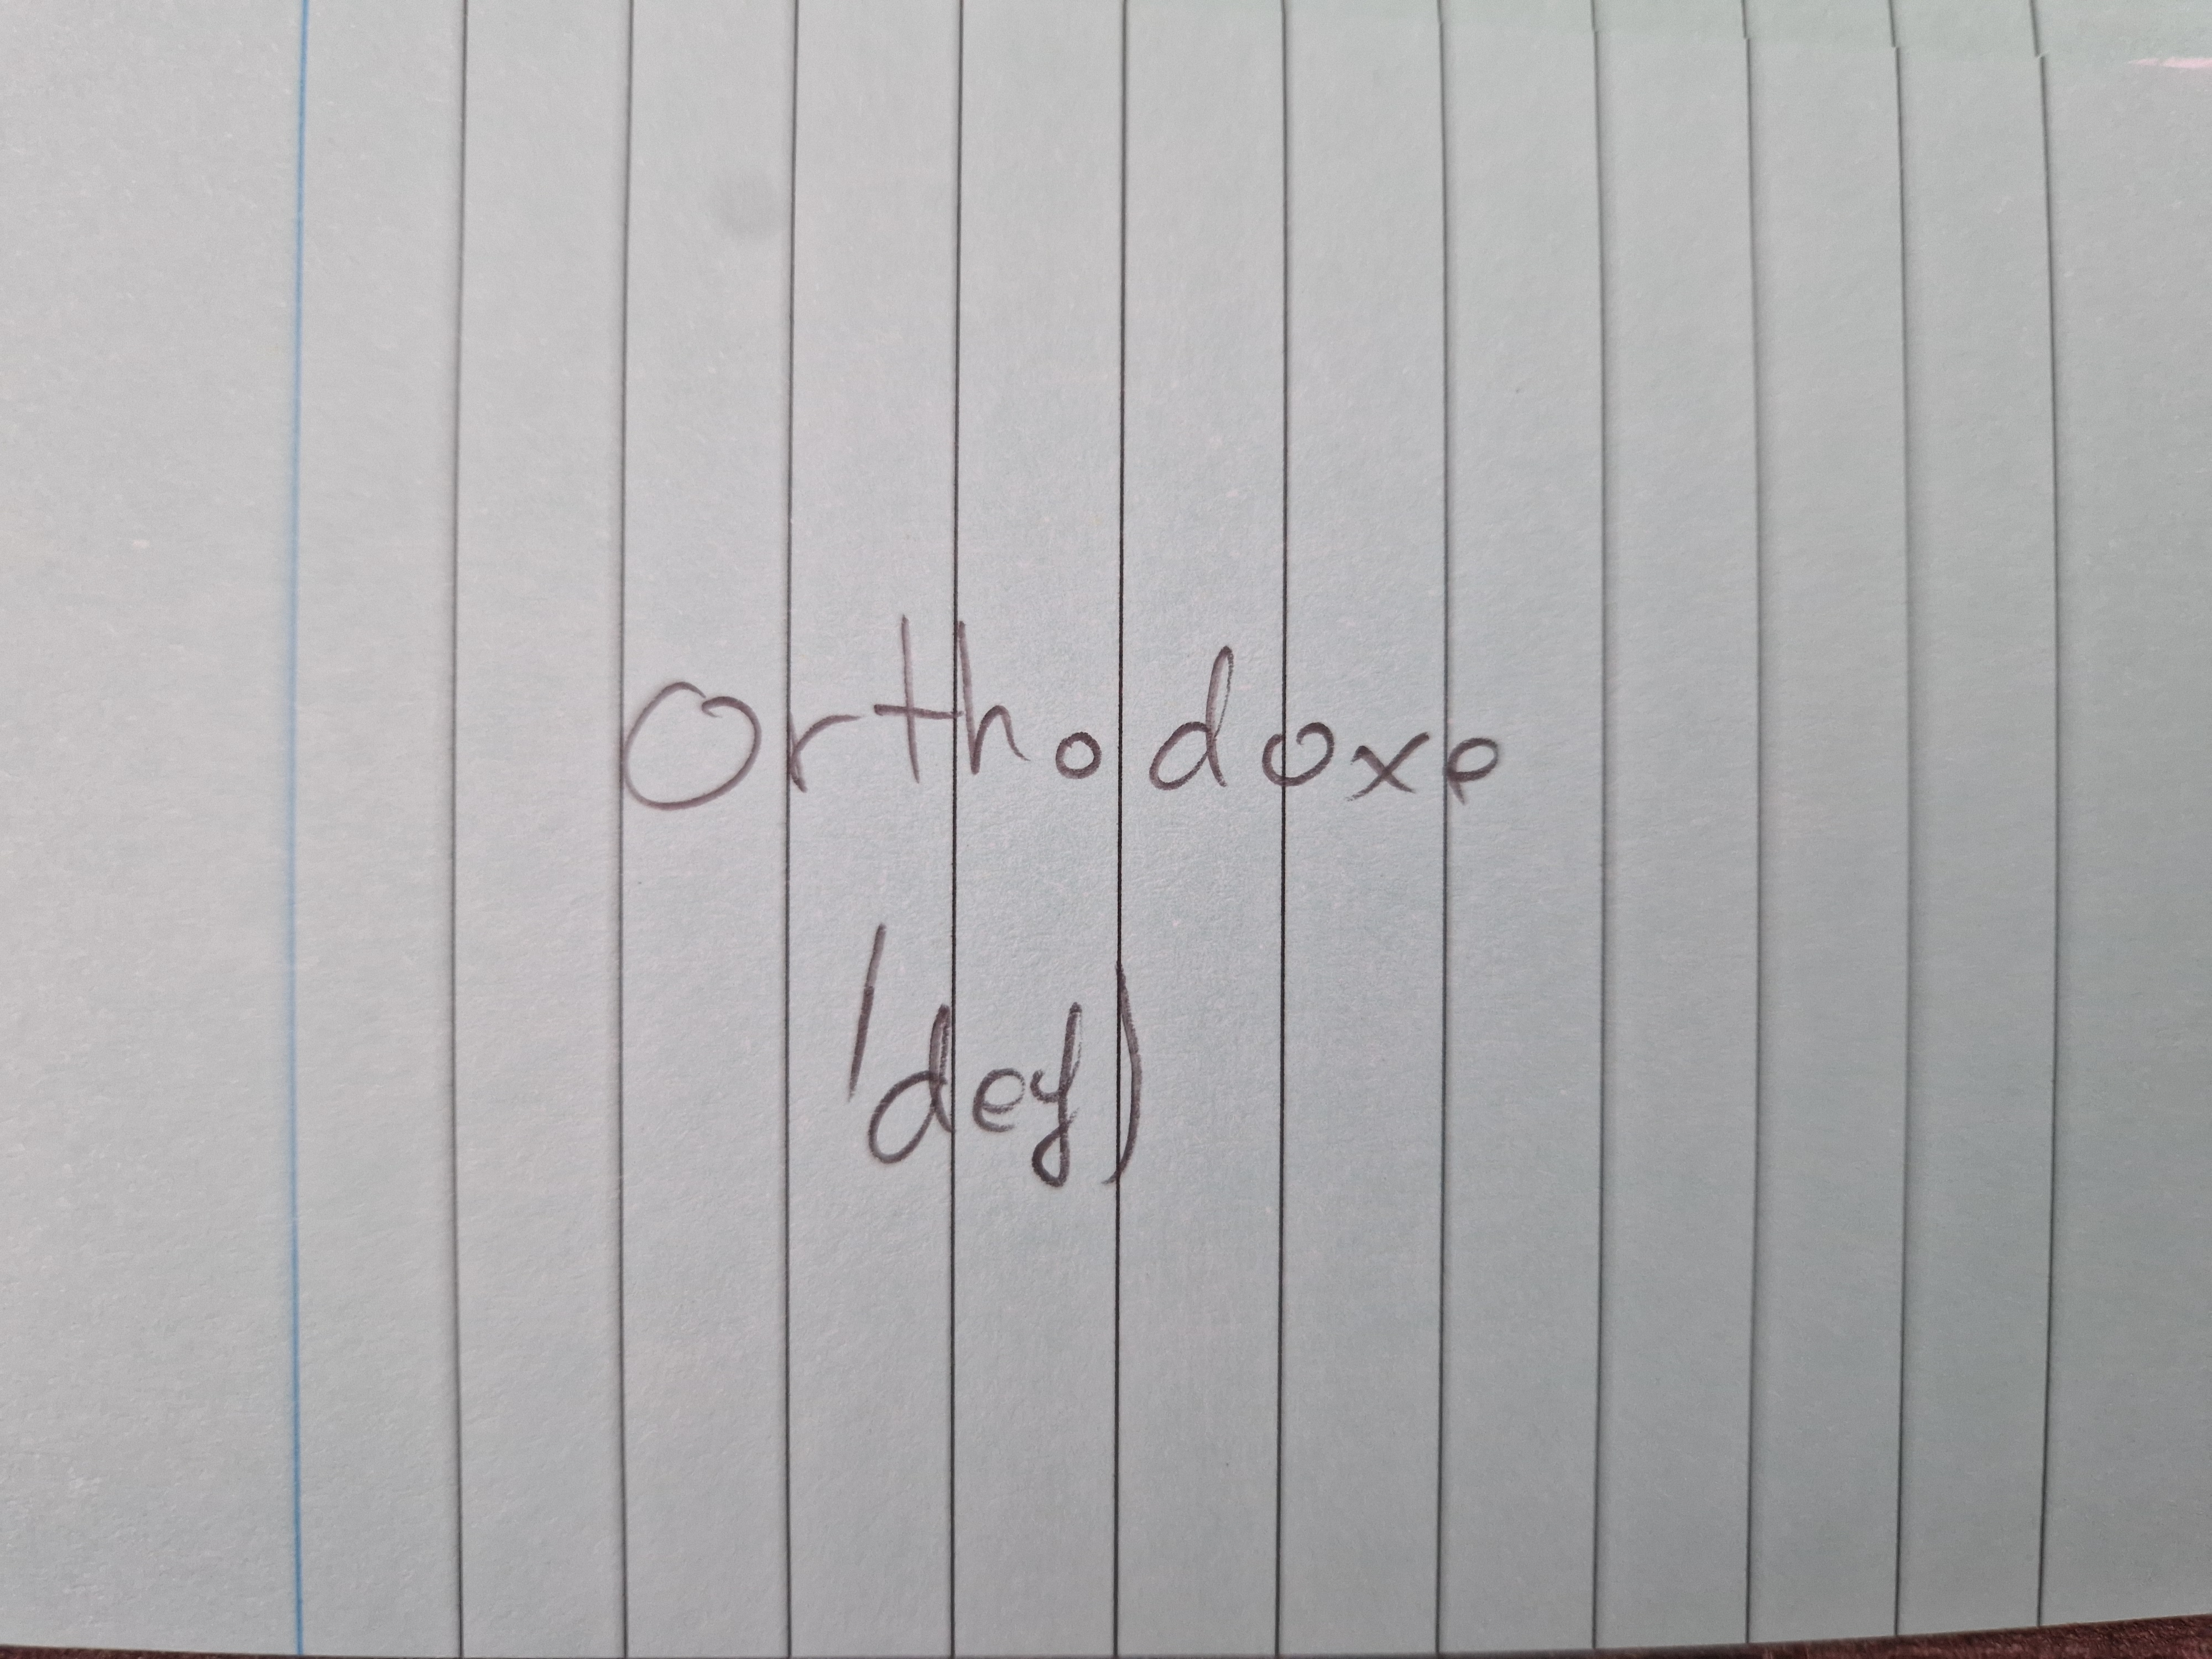 Orthodoxe
/dey)